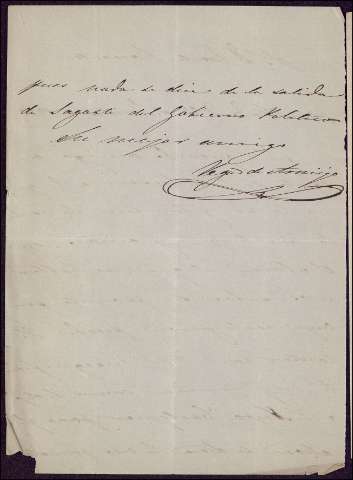 pues nada se dice de la salida
de Sagasta del Gobierno Politico
Su mejor amigo
Vega de Armijo